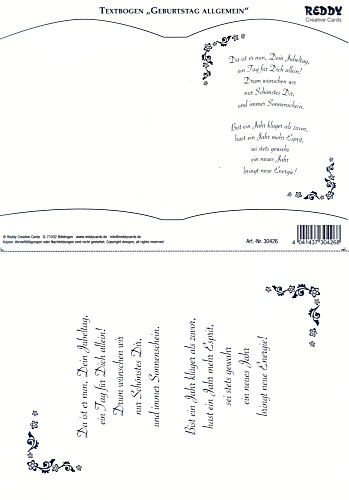 TEXTBOGEN „GEBURTSTAG ALLGEMEIN“
REDDY
Creative Cards
Da ist er nun, Dein Jubeltag,
ein Tag für Dich allein!
Drum wünschen wir
nur Schönstes Dir,
und immer Sonnenschein.
Bist ein Jahr klüger als zuvor,
hast ein Jahr mehr Esprit,
sei stets gewahr
ein neues Jahr
bringt neue Energie!
© Reddy Creative Cards D-71032 Böblingen www.reddycards.de info@reddycards.de
Kopien, Vervielfältigungen oder Nachbildungen sind nicht gestattet. Copyright designs, all rights reserved.
Art.-Nr. 30426
4 041437 304268
Da ist er nun, Dein Jubeltag,
ein Tag für Dich allein!
Drum wünschen wir
nur Schönstes Dir,
und immer Sonnenschein.
Bist ein Jahr klüger als zuvor,
hast ein Jahr mehr Esprit,
sei stets gewahr
ein neues Jahr
bringt neue Energie!